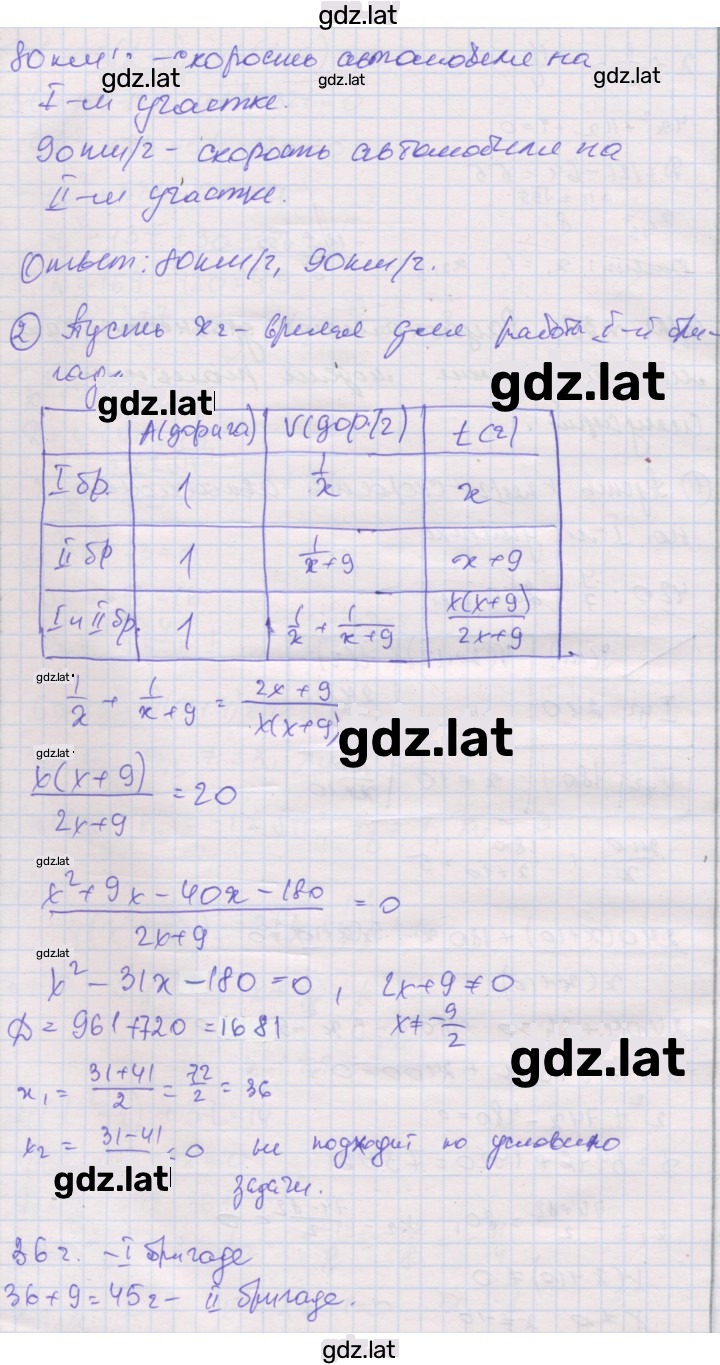 gdz.lat
80 км/ - скорость автомобиля на
gdz.lat gdz.lat gdz.lat
I-м участке.
90 км/г - скорость автомобиля на
II-м участке.
Ответ: 80 км/г, 90 км/г.
② Пусть x г - время для работы I-й бри-
gdz.lat
gdz.lat
A(дорога) V(дор./г) t(г)
I бр. 1 1/x x
II бр 1 1/x+9 x+9
I и II бр. 1 1/x + 1/x+9 x(x+9)/2x+9
gdz.lat
1/x + 1/x+9 = 2x+9/x(x+9)
gdz.lat
gdz.lat
x(x+9)/2x+9 = 20
gdz.lat
x²+9x-40x-180/2x+9 = 0
gdz.lat
x² - 31x - 180 = 0, 2x+9 ≠ 0
D = 961+720 = 1681 x ≠ -9/2
gdz.lat
x₁ = 31+41/2 = 72/2 = 36
x₂ = 31-41/ <0 не подходит по условию
gdz.lat
задачи.
36 г. - I бригаде
36+9=45 г - II бригаде.
gdz.lat